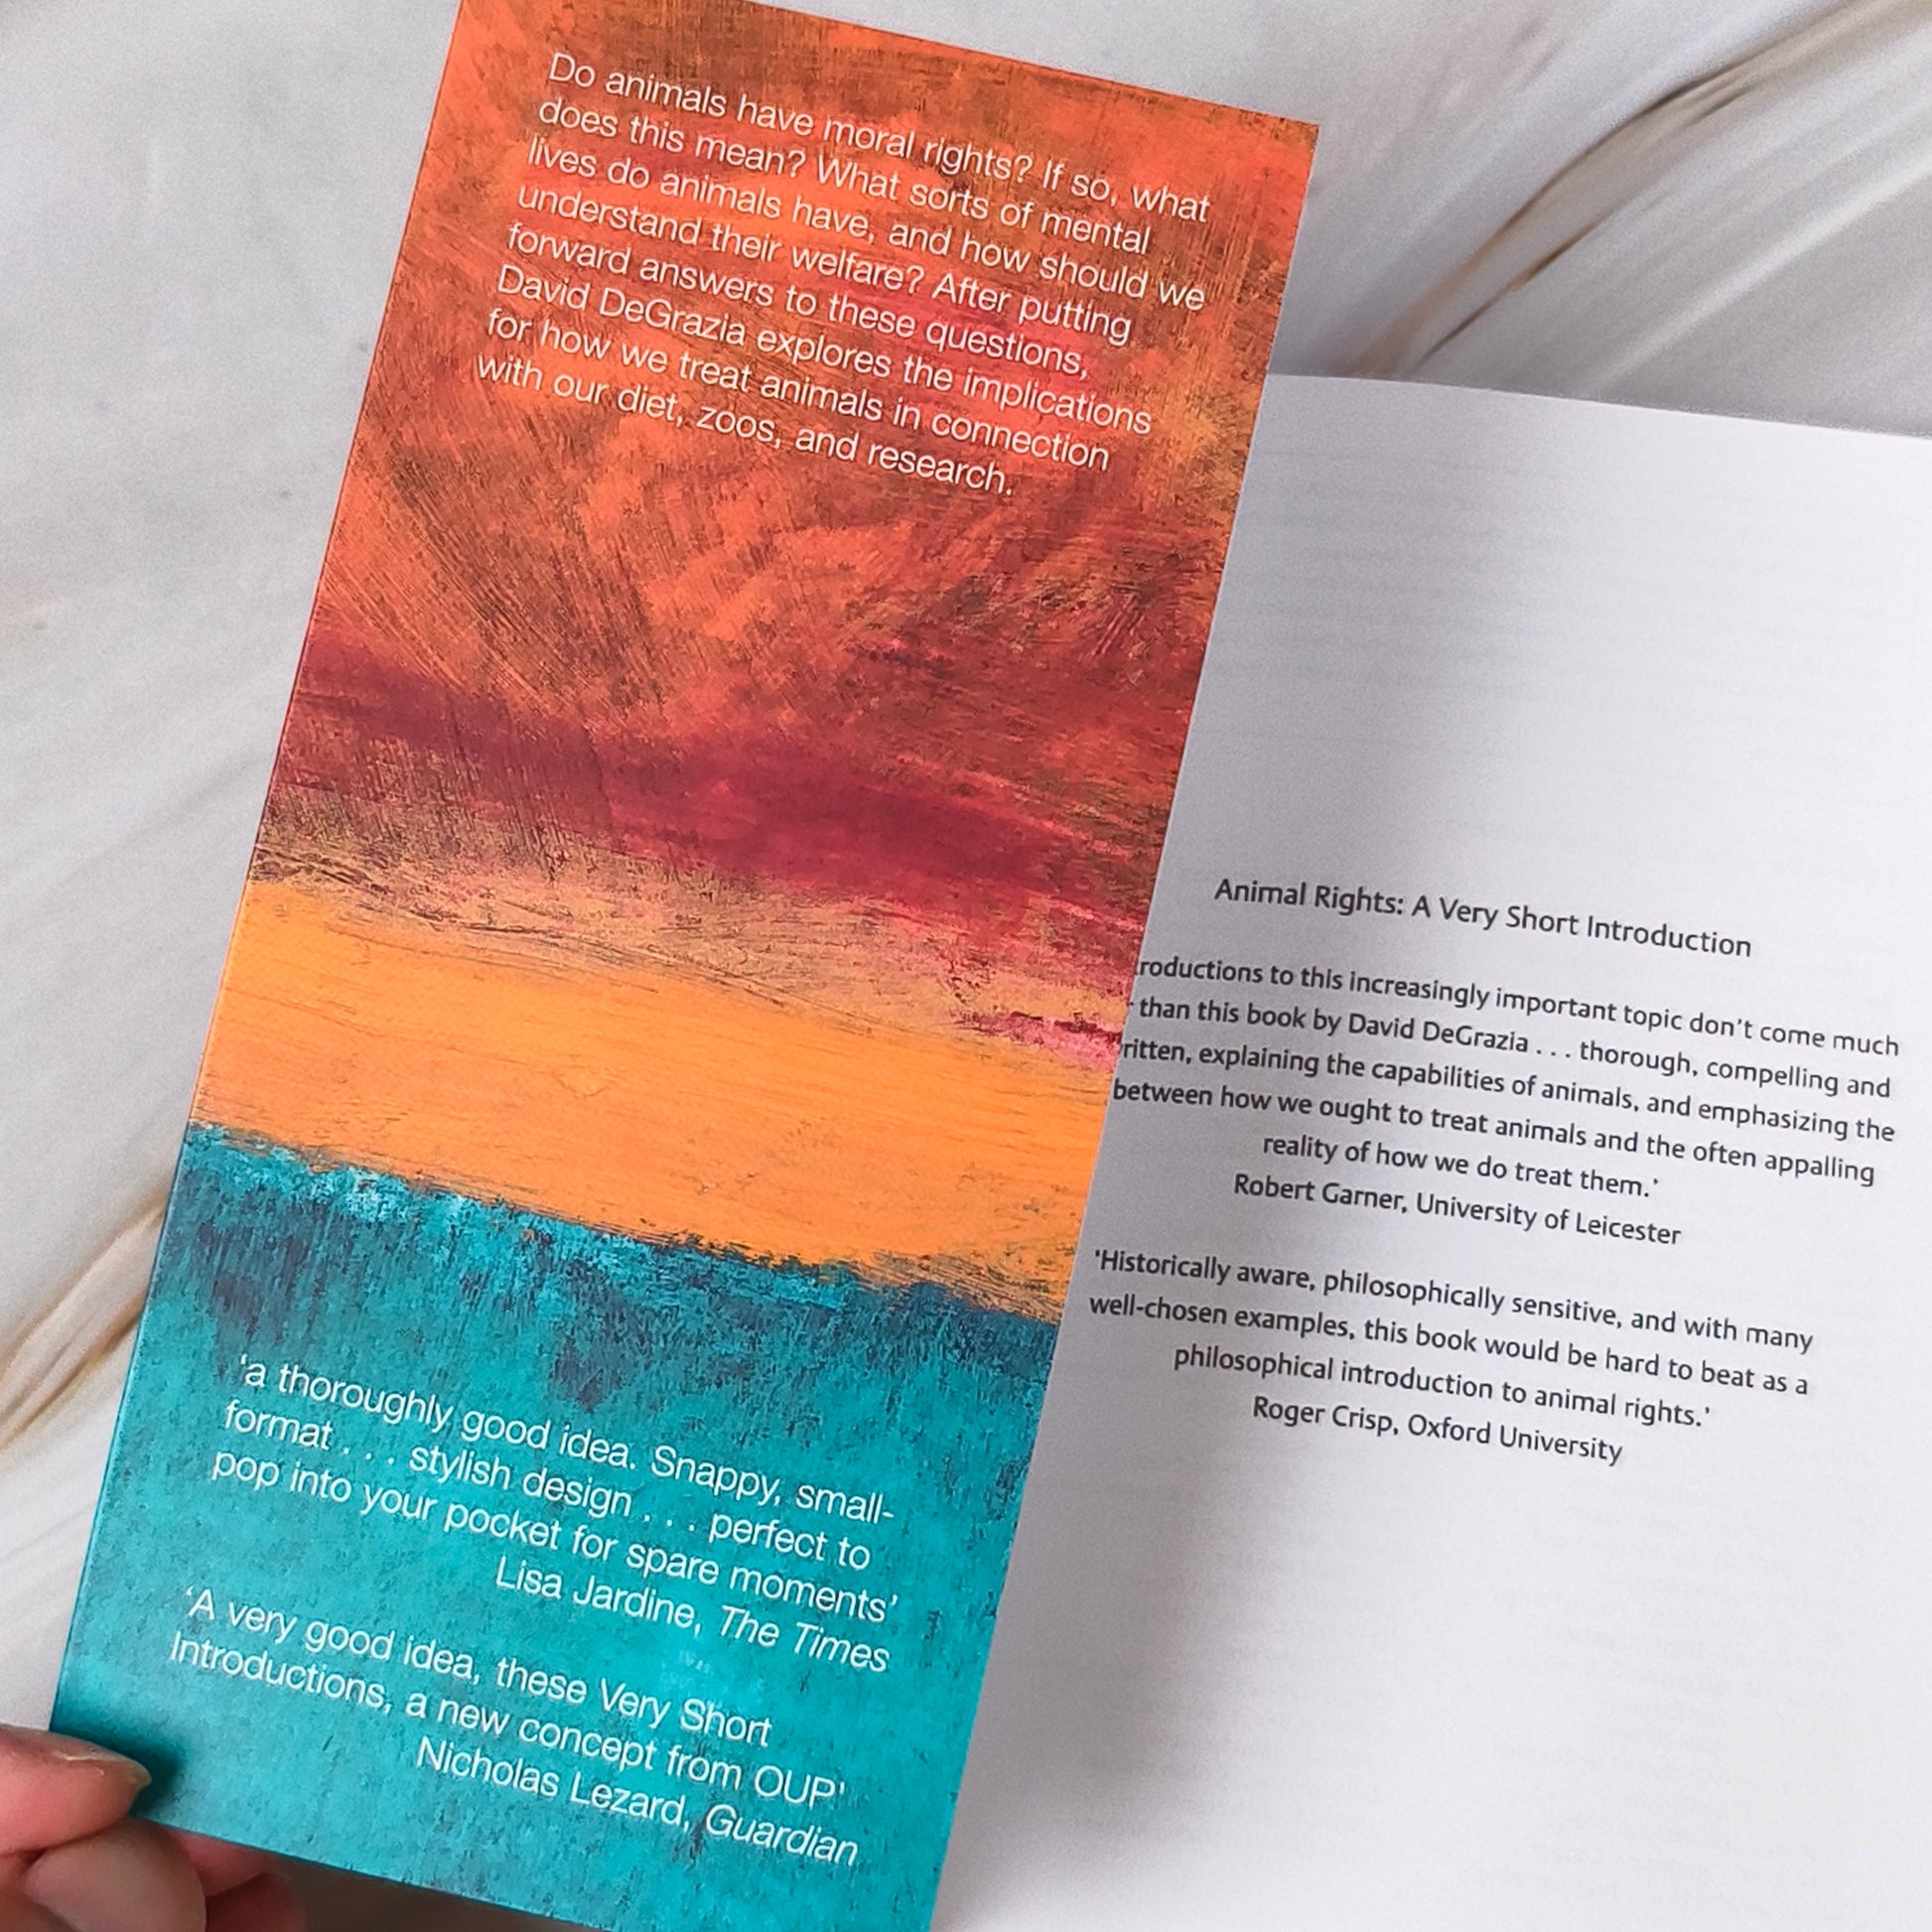 Do animals have moral rights? If so, what
does this mean? What sorts of mental
lives do animals have, and how should we
understand their welfare? After putting
forward answers to these questions,
David DeGrazia explores the implications
for how we treat animals in connection
with our diet, zoos, and research.
'a thoroughly good idea. Snappy, small-
format . . . stylish design . . . perfect to
pop into your pocket for spare moments'
Lisa Jardine, The Times
'A very good idea, these Very Short
Introductions, a new concept from OUP'
Nicholas Lezard, Guardian
Animal Rights: A Very Short Introduction
to this increasingly important topic don't come much
than this book by David DeGrazia . . . thorough, compelling and
explaining the capabilities of animals, and emphasizing the
between how we ought to treat animals and the often appalling
reality of how we do treat them.'
Robert Garner, University of Leicester
'Historically aware, philosophically sensitive, and with many
well-chosen examples, this book would be hard to beat as a
philosophical introduction to animal rights.'
Roger Crisp, Oxford University